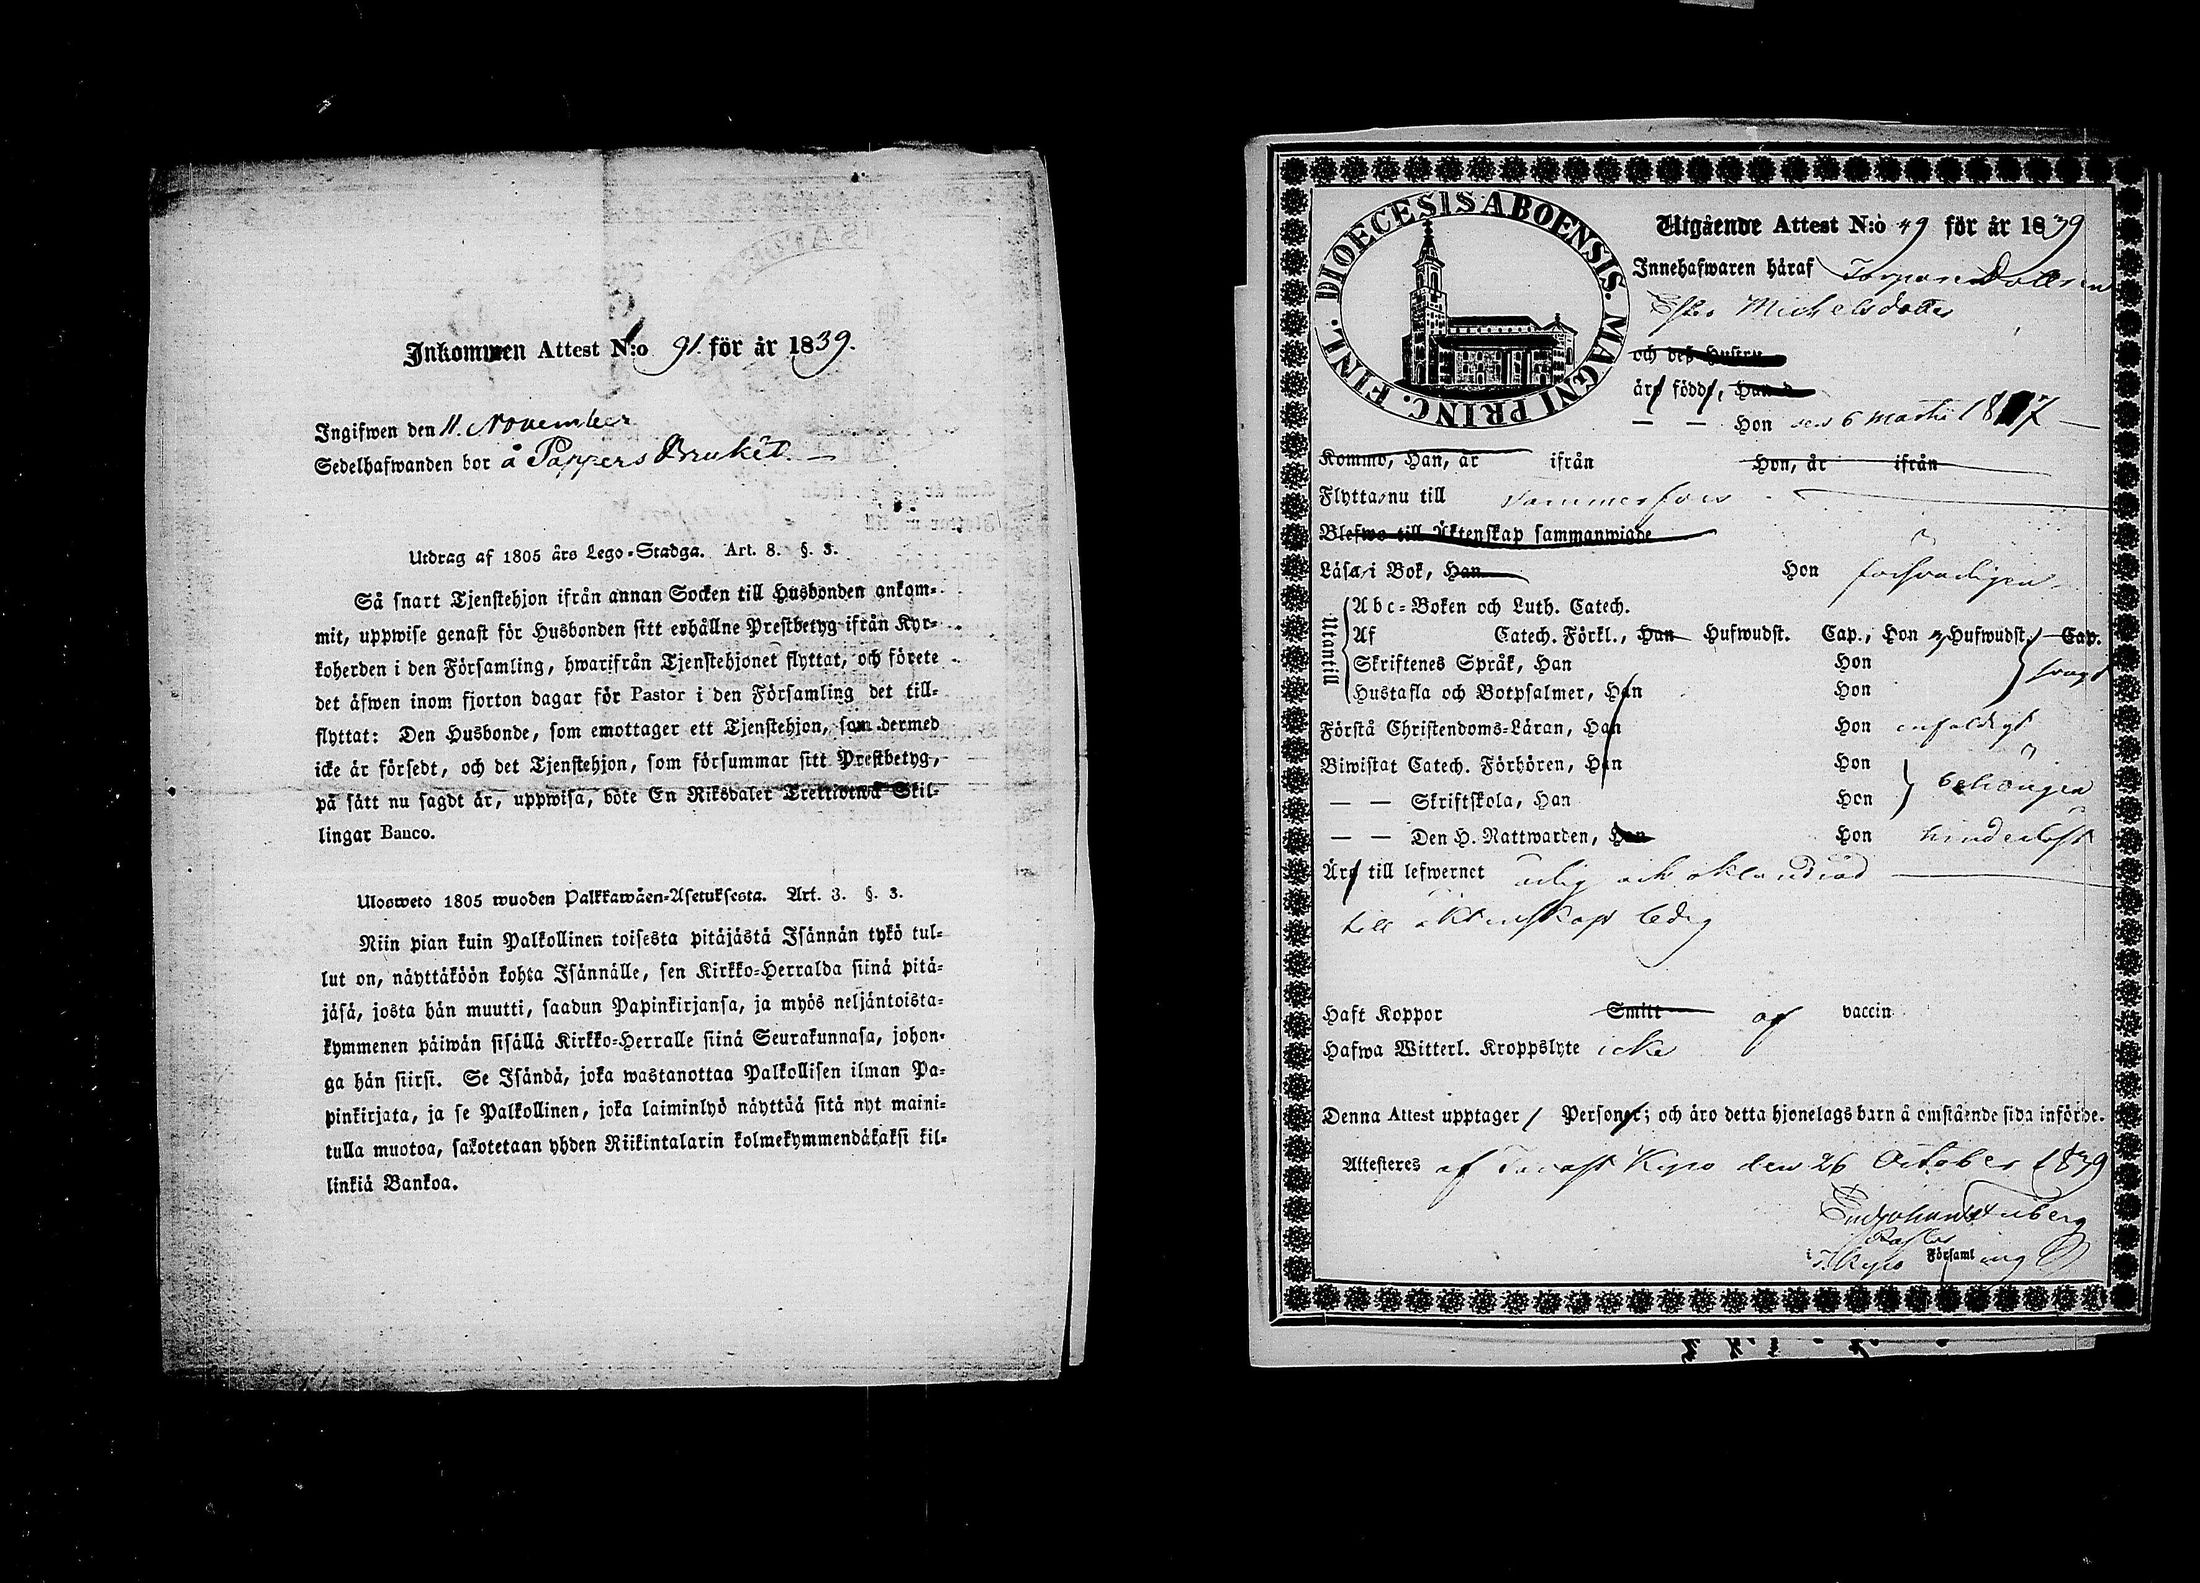 Inkommen Attest N:o 91. för år 1839.
Ingifwen den 11. November
Sedelhafwanden bor å Pappers Bruket.
Utdrag af 1805 års Lego-Stadga. Art. 8. §. 3.
Så snart Tjenstehjon ifrån annan Socken till Husbonden ankom-
mit, uppwise genast för Husbonden sitt erhållne Prestbetyg ifrån Kyr-
koherden i den Församling, hwarifrån Tjenstehjonet flyttat, och förete
det äfwen inom fjorton dagar för Pastor i den Församling det till-
flyttat: Den Husbonde, som emottager ett Tjenstehjon, som dermed
icke är försedt, och det Tjenstehjon, som försummar sitt Prestbetyg,
på sätt nu sagdt är, uppwisa, böte En Riksdaler Trettiotwå Skil-
lingar Banco.
Ulosweto 1805 wuoden Palkkawäen-Asetuksesta. Art. 3. §. 3.
Niin pian kuin Palkollinen toisesta pitäjästä Isännän tykö tul-
lut on, näyttäköön kohta Isännälle, sen Kirkko-Herralda siinä pitä-
jäsä, josta hän muutti, saadun Papinkirjansa, ja myös neljäntoista-
kymmenen päiwän sisällä Kirkko-Herralle siinä Seurakunnasa, johon-
ga hän siirsi. Se Isändä, joka wastanottaa Palkollisen ilman Pa-
pinkirjata, ja se Palkollinen, joka laiminlyö näyttää sitä nyt maini-
tulla muotoa, sakotetaan yhden Riikintalarin kolmekymmendäkaksi kil-
linkiä Bankoa.
DIOECESIS ABOENSIS. MAGNI PRINC. FINL.
Utgående Attest N:o 49 för år 1839
Innehafwaren häraf Torpare Dottren
Michelsdotter
och deß Hustru
äro födde, Han d
— — Hon den 6 Martii 1817
Kommo, Han, år ifrån Hon, år ifrån
Flytta nu till Tammerfors
Blefwo till Äktenskap sammanwigde
Läsa i Bok, Han Hon försvarligen
Utantill
Abc-Boken och Luth. Catech.
Af Catech. Förkl., Han Hufwudst. Cap., Hon 3 Hufwudst. Cap.
Skriftenes Språk, Han Hon svagt
Hustafla och Botpsalmer, Han Hon
Förstå Christendoms-Läran, Han Hon enfaldigt
Biwistat Catech. Förhören, Han Hon behörigen
— — Skriftskola, Han Hon
— — Den H. Nattwarden, Han Hon hinderlöst
Äro till lefwernet ärlig och oklandrad
till äktenskap ledig
Haft Koppor Smitt af vaccin
Hafwa Witterl. Kroppslyte icke
Denna Attest upptager 1 Personer; och äro detta hjonelags barn å omstående sida införde.
Attesteres af Tavast Kyro den 26 October 1839
Pastor
i T. Kyro Församling